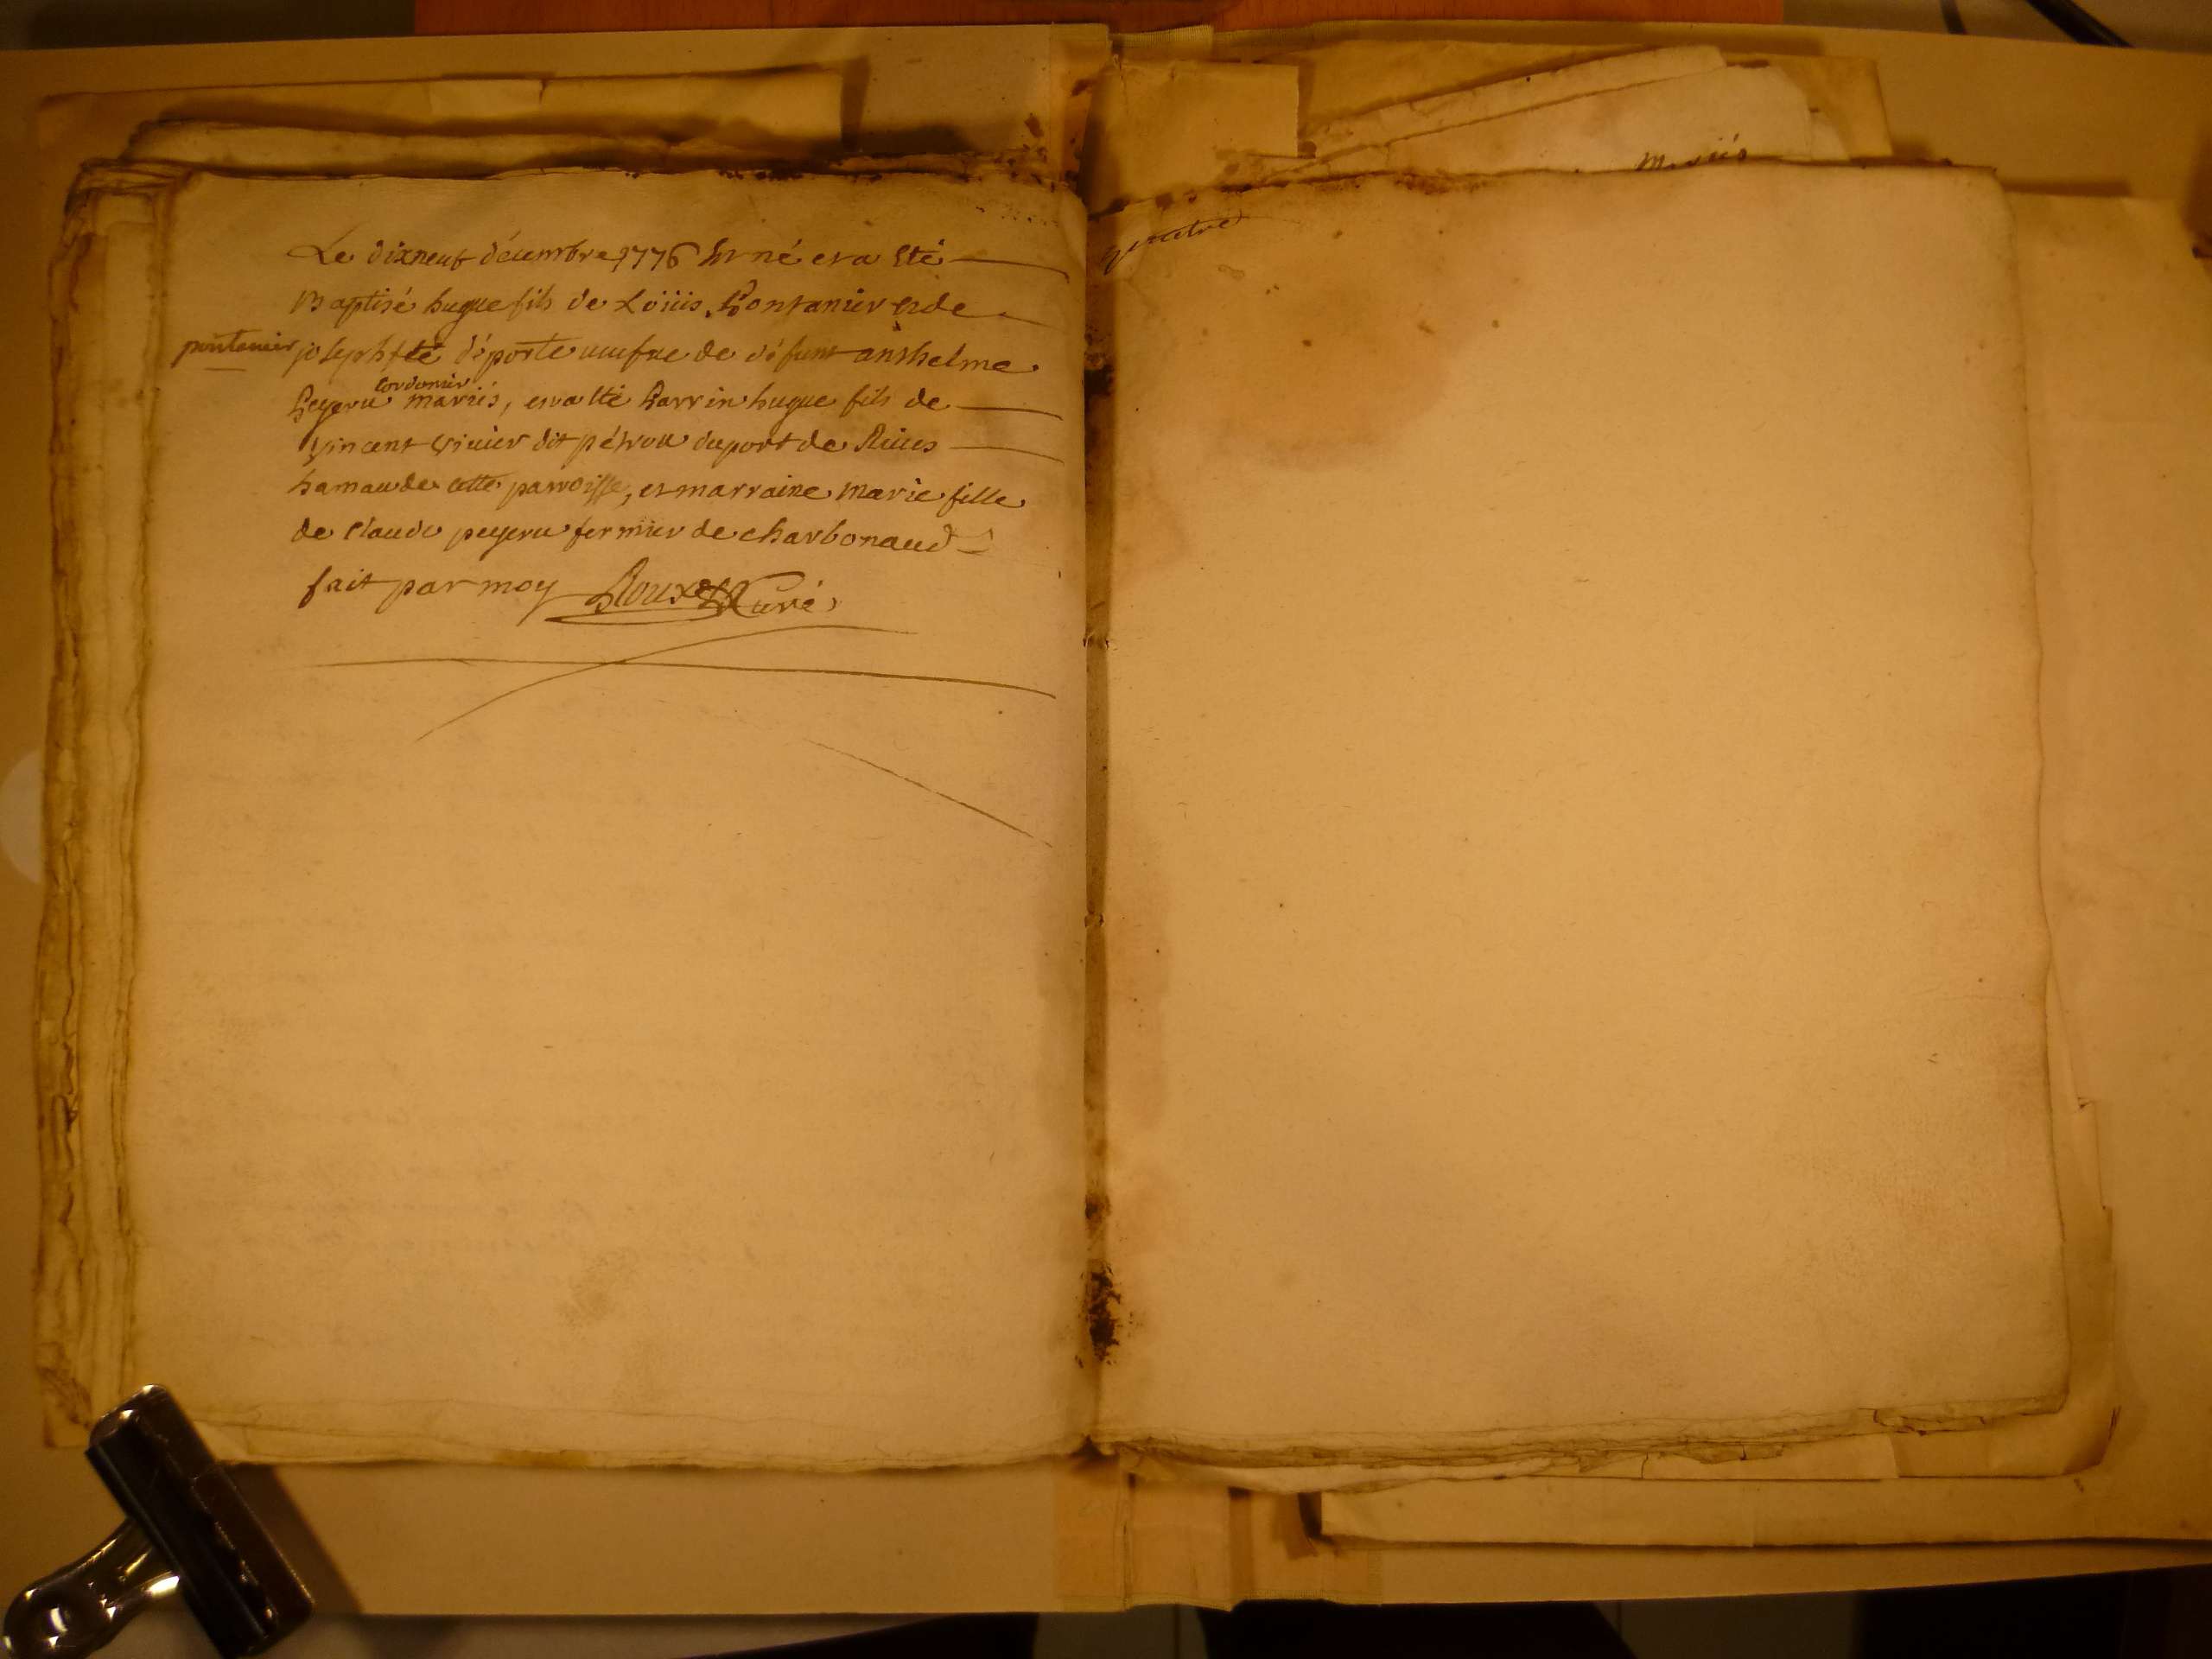 Le dixneuf décembre 1776 est né et a été
Baptisé hugue fils de Loüis Pontanier et de
pontanier
josephte déporte veufve de défunt anthelme
cordonier
Peyeru mariés, et a été Parrin hugue fils de
Vincent vivier dit pérrou du port de Rives
hamau de cette parroisse, et marraine marie fille
de Claude peyeru fermier de charbonaud
fait par moy Roux Curé
quatre